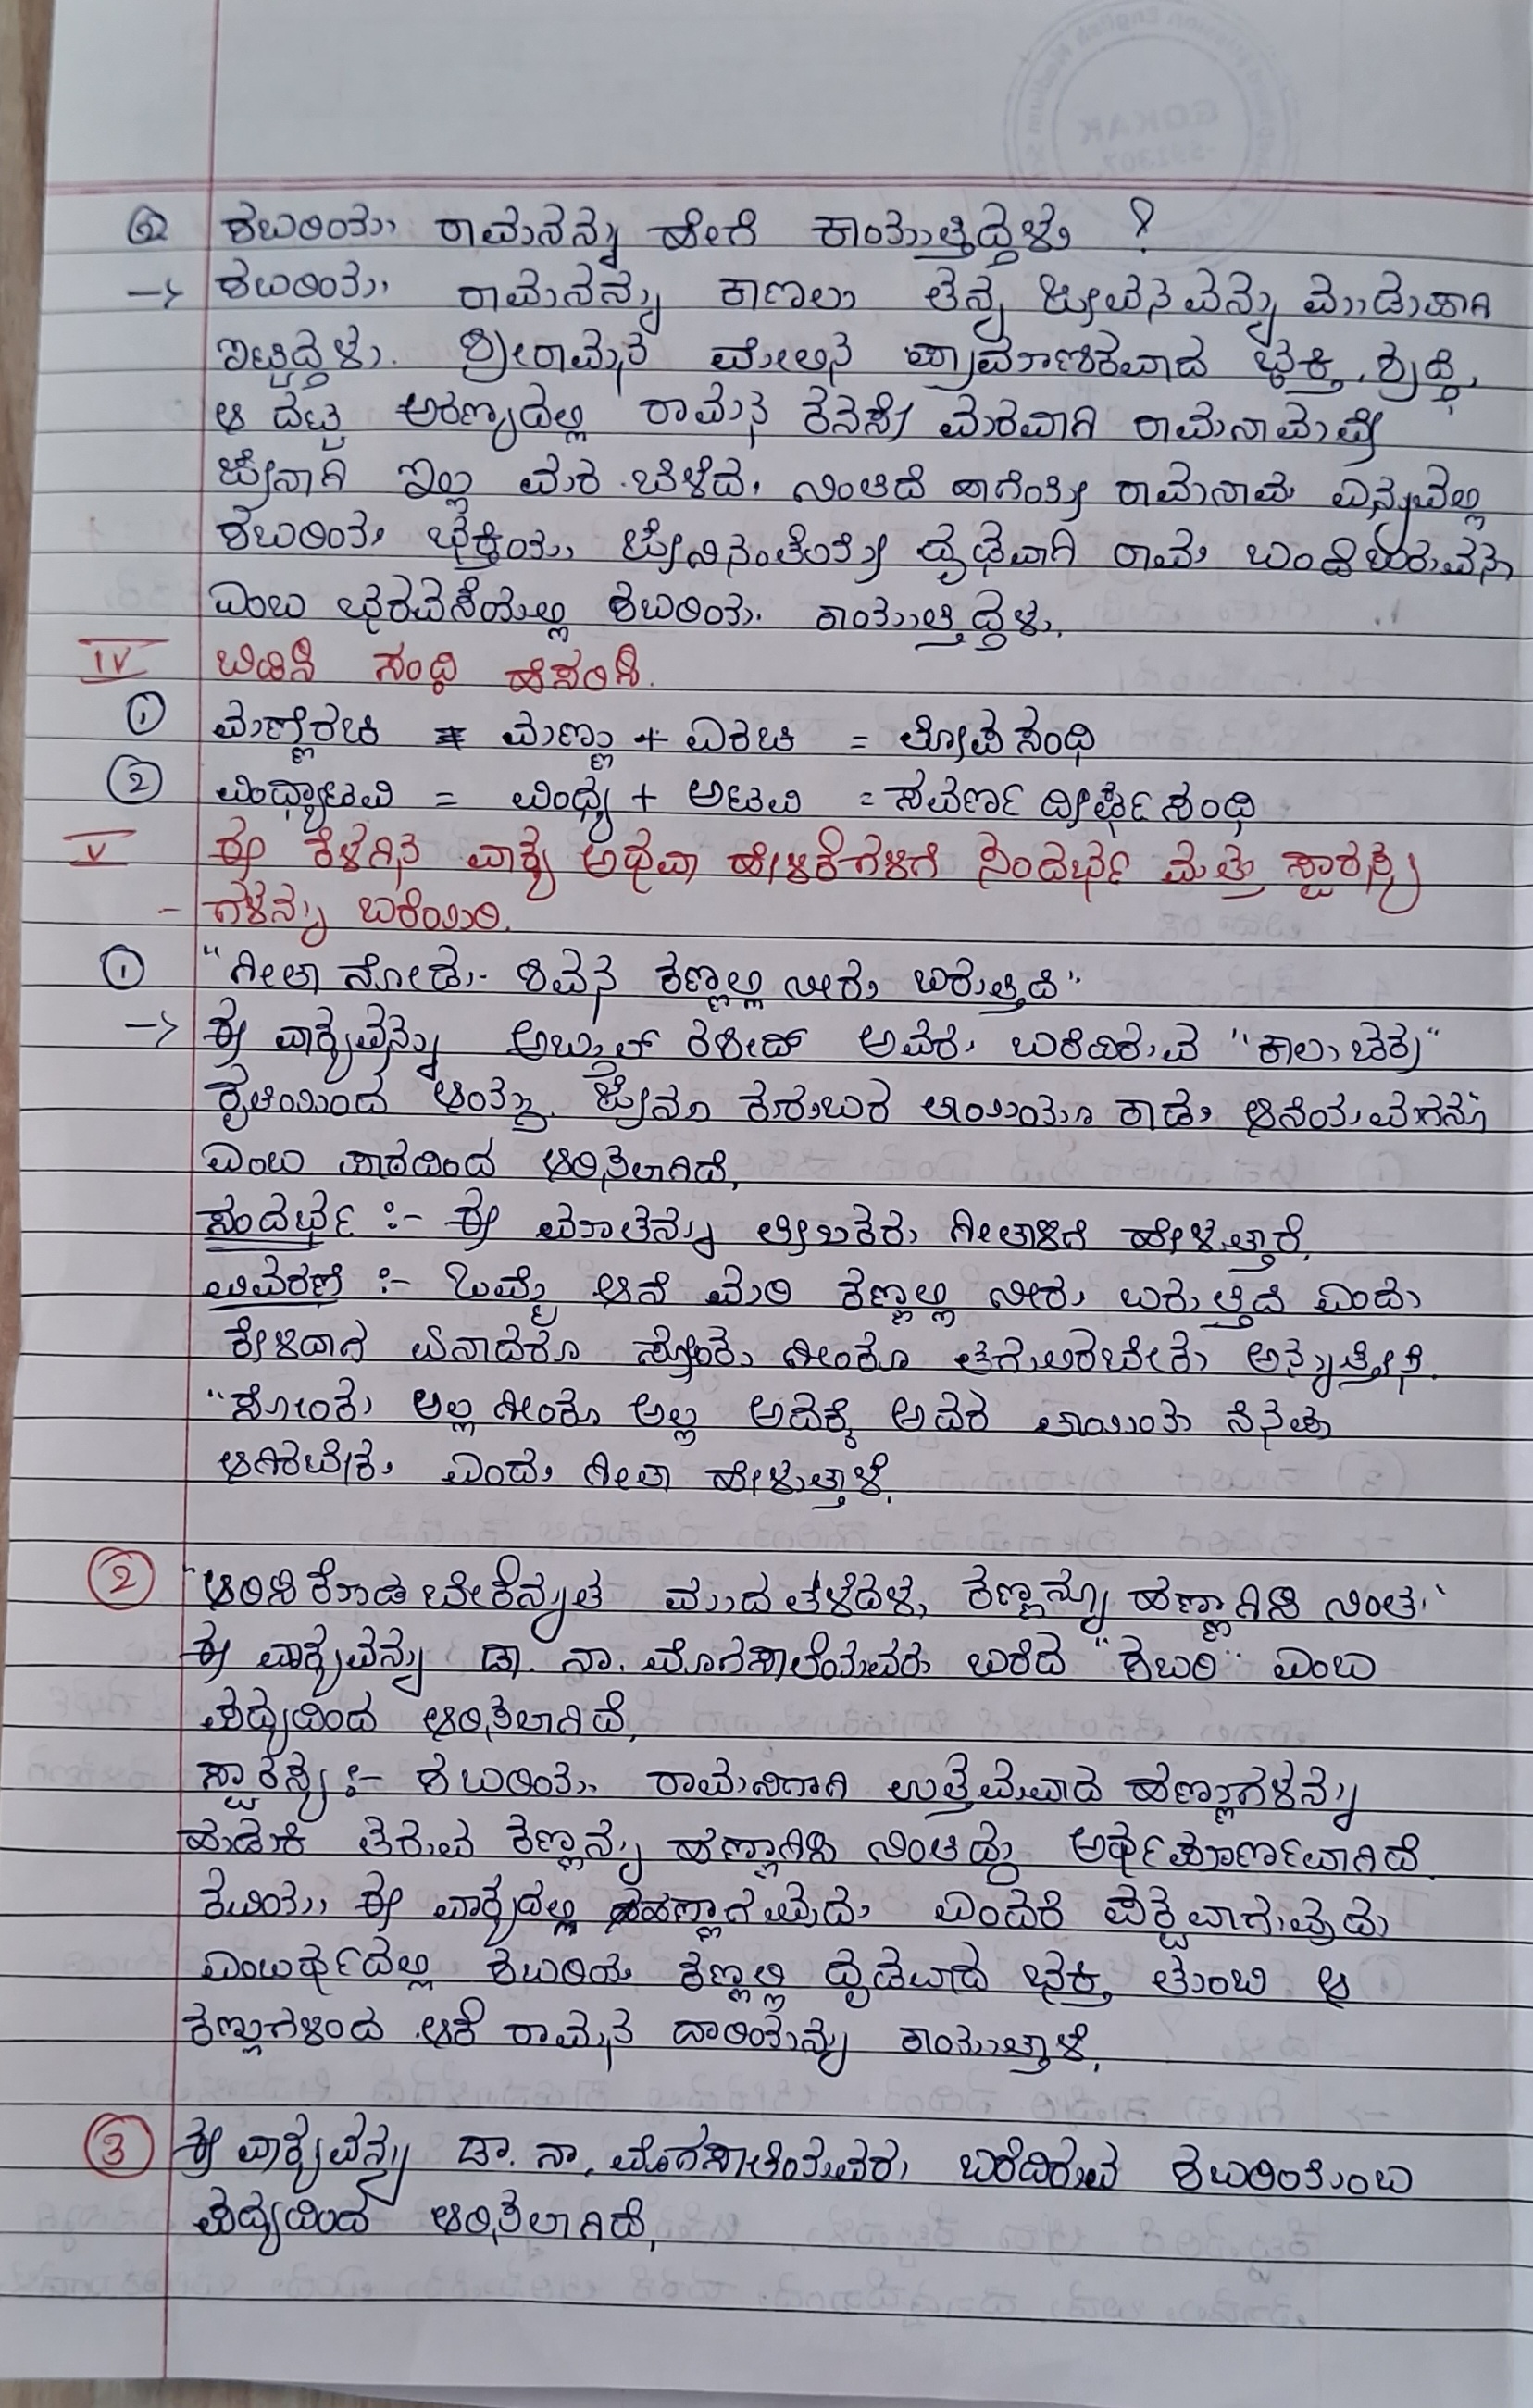 ② ಶಬರಿಯು ರಾಮನನ್ನು ಹೇಗೆ ಕಾಯುತ್ತಿದ್ದಳು ?
→ ಶಬರಿಯು ರಾಮನನ್ನು ಕಾಣಲು ತನ್ನ ಜೀವನವನ್ನು ಮುಡುಪಾಗಿ
ಇಟ್ಟಿದ್ದಳು. ಶ್ರೀರಾಮನ ಮೇಲಿನ ಪ್ರಾಮಾಣಿಕವಾದ ಭಕ್ತಿ, ಶ್ರದ್ಧೆ,
ಆ ದಟ್ಟ ಅರಣ್ಯದಲ್ಲಿ ರಾಮನ ಕನಸೇ ಮರವಾಗಿ ರಾಮನಾಮವೇ
ಜೇನಾಗಿ ಇಲ್ಲಿ ಮರ ಬೆಳೆದು ನಿಂತಿದೆ ಹಾಗೆಯೇ ರಾಮನಾಮ ಎನ್ನುವಲ್ಲಿ
ಶಬರಿಯ ಭಕ್ತಿಯು ಜೇನಿನಂತೆಯೇ ದೃಢವಾಗಿ ರಾಮ ಬಂದೇ ಬರುವನು
ಎಂಬ ಭರವಸೆಯಲ್ಲಿ ಶಬರಿಯು ಕಾಯುತ್ತಿದ್ದಳು.
IV ಬಿಡಿಸಿ ಸಂಧಿ ಹೆಸರಿಸಿ.
① ಮಣ್ಣೆರಚಿ = ಮಣ್ಣು + ಎರಚಿ = ಲೋಪ ಸಂಧಿ
② ವಿಂಧ್ಯಾಟವಿ = ವಿಂಧ್ಯ + ಅಟವಿ = ಸವರ್ಣ ದೀರ್ಘ ಸಂಧಿ
V ಈ ಕೆಳಗಿನ ವಾಕ್ಯ ಅಥವಾ ಹೇಳಿಕೆಗಳಿಗೆ ಸಂದರ್ಭ ಮತ್ತು ಸ್ವಾರಸ್ಯ
- ಗಳನ್ನು ಬರೆಯಿರಿ.
① "ಗೀತಾ ನೋಡು- ಶಿವನ ಕಣ್ಣಲ್ಲಿ ನೀರು ಬರುತ್ತಿದೆ"
→ ಈ ವಾಕ್ಯವನ್ನು ಅಬ್ದುಲ್ ರಶೀದ್ ಅವರು ಬರೆದಿರುವ "ಕಾಲು ಚಕ್ರ"
ಕೃತಿಯಿಂದ ಆಯ್ದ ಜೇನು ಕುರುಬರ ತಾಯಿಯೂ ಕಾಡು ಆನೆಯ ಮಗನು
ಎಂಬ ಪಾಠದಿಂದ ಆರಿಸಲಾಗಿದೆ.
ಸಂದರ್ಭ :- ಈ ಮಾತನ್ನು ಲೇಖಕರು ಗೀತಾಳಿಗೆ ಹೇಳುತ್ತಾರೆ.
ವಿವರಣೆ :- ಒಮ್ಮೆ ಆನೆ ಮರಿ ಕಣ್ಣಲ್ಲಿ ನೀರು ಬರುತ್ತಿದೆ ಎಂದು
ಕೇಳಿದಾಗ ಏನಾದರೂ ಸೋಂಕು ಗೀಂಕೂ ತಗುಲಿರಬೇಕು ಅನ್ನುತ್ತೇನೆ.
"ಸೋಂಕು ಅಲ್ಲ ಗೀಂಕೂ ಅಲ್ಲ ಅದಕ್ಕೆ ಅದರ ತಾಯಿಯ ನೆನಪು
ಆಗಿರಬೇಕು ಎಂದು ಗೀತಾ ಹೇಳುತ್ತಾಳೆ.
② "ಆರಿಸಿ ಕೊಡಬೇಕೆನ್ನುತ ಮುದ ತಳೆದಳು, ಕಣ್ಣನ್ನು ಹಣ್ಣಾಗಿಸಿ ನಿಂತು"
ಈ ವಾಕ್ಯವನ್ನು ಡಾ. ನಾ. ಮೊಗಸಾಲೆಯವರು ಬರೆದ "ಶಬರಿ" ಎಂಬ
ಪದ್ಯದಿಂದ ಆರಿಸಲಾಗಿದೆ.
ಸ್ವಾರಸ್ಯ :- ಶಬರಿಯು ರಾಮನಿಗಾಗಿ ಉತ್ತಮವಾದ ಹಣ್ಣುಗಳನ್ನು
ಹುಡುಕಿ ತರುವ ಕಣ್ಣನ್ನು ಹಣ್ಣಾಗಿಸಿ ನಿಂತಿದ್ದು ಅರ್ಥಪೂರ್ಣವಾಗಿದೆ
ಕವಿಯು ಈ ವಾಕ್ಯದಲ್ಲಿ ಹಣ್ಣಾಗುವುದು ಎಂದರೆ ಪಕ್ವವಾಗುವುದು
ಎಂಬರ್ಥದಲ್ಲಿ ಶಬರಿಯ ಕಣ್ಣಲ್ಲಿ ದೃಢವಾದ ಭಕ್ತಿ ತುಂಬಿ ಆ
ಕಣ್ಣುಗಳಿಂದ ಆಕೆ ರಾಮನ ದಾರಿಯನ್ನು ಕಾಯುತ್ತಾಳೆ.
③ ಈ ವಾಕ್ಯವನ್ನು ಡಾ. ನಾ. ಮೊಗಸಾಲೆಯವರು ಬರೆದಿರುವ ಶಬರಿಯೆಂಬ
ಪದ್ಯದಿಂದ ಆರಿಸಲಾಗಿದೆ.